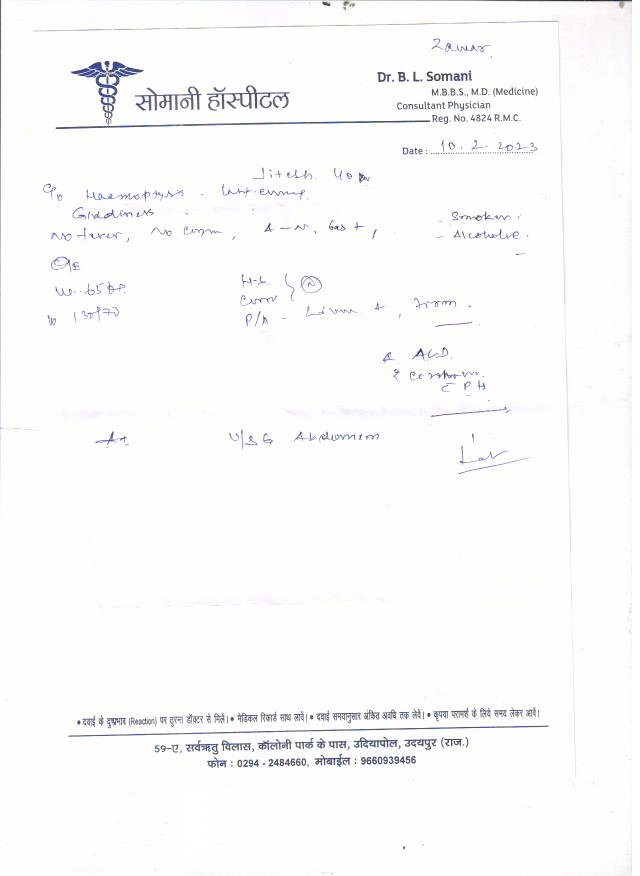 Zawar
सोमानी हॉस्पीटल
Dr. B. L. Somani
M.B.B.S., M.D. (Medicine)
Consultant Physician
Reg. No. 4824 R.M.C.
Date : 10.2.2023
Jitesh 40
C/o Haemoptysis -
Giddiness
No fever, No , A-N, Gas +,
- Smoker
- Alcoholic
O/E
W.. 65
130/70
H-S
N
P/A - +,
ALD
PH
U/S G Abdomen
• दवाई के दुष्प्रभाव (Reaction) पर तुरन्त डॉक्टर से मिलें। • मेडिकल रिकार्ड साथ लावें। • दवाई समयानुसार अंकित अवधि तक लेवें। • कृपया परामर्श के लिये समय लेकर आवें।
59-ए, सर्वऋतु विलास, कॉलोनी पार्क के पास, उदियापोल, उदयपुर (राज.)
फोन : 0294 - 2484660, मोबाईल : 9660939456